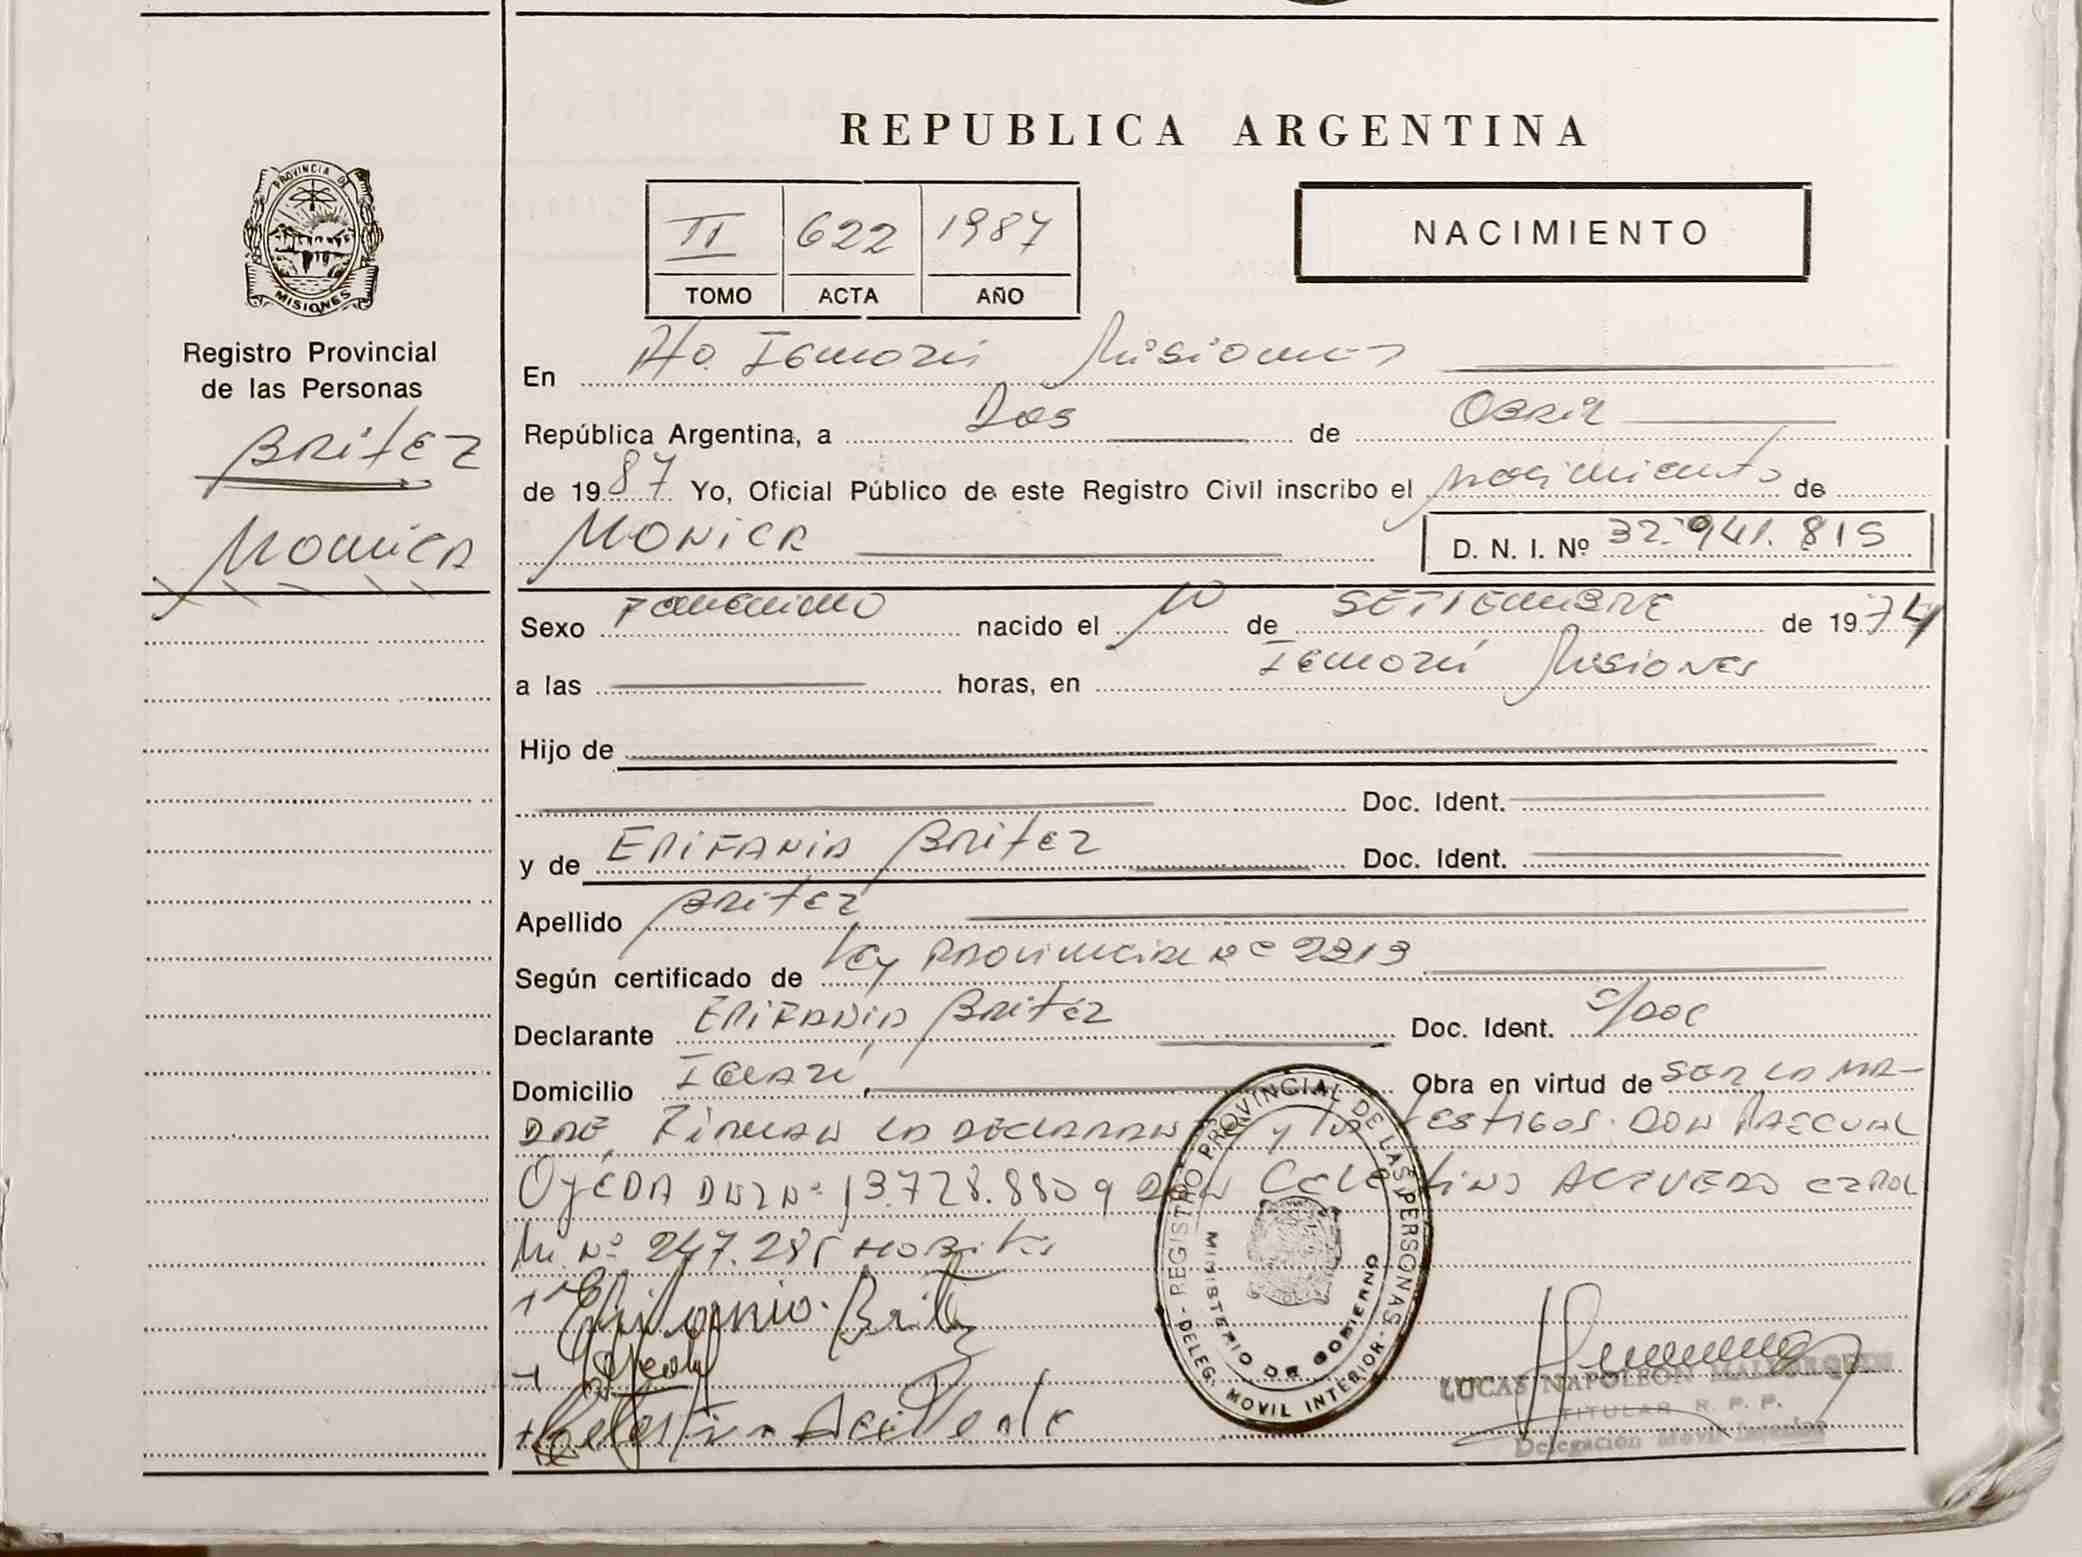 REPUBLICA ARGENTINA
PROVINCIA DE
MISIONES
Registro Provincial
de las Personas
BRITEZ
MONICA
II 622 1987
TOMO ACTA AÑO
NACIMIENTO
En Pto. Misiones
República Argentina, a Dos de Abril
de 1987 Yo, Oficial Público de este Registro Civil inscribo el nacimiento de
MONICA D. N. I. Nº 32.941.815
Sexo Femenino nacido el 10 de SETIEMBRE de 1974
a las horas, en Misiones
Hijo de
Doc. Ident.
y de EPIFANIA BRITEZ Doc. Ident.
Apellido BRITEZ
Según certificado de Ley PROVINCIAL Nº 2213
Declarante EPIFANIA BRITEZ Doc. Ident. S/DOC
Domicilio Obra en virtud de SER LA MA-
DRE, FIRMAN LA y los TESTIGOS. DON PASCUAL
OJEDA DNI Nº 13.728.880 y DON CELESTINO
M. Nº 247.285
Epifania Britez
Ojeda
Celestin
REGISTRO PROVINCIAL DE LAS PERSONAS
MINISTERIO DE GOBIERNO
DELEG. MOVIL INTERIOR
LUCAS NAPOLEON
TITULAR R. P. P.
Delegación Movil Interior